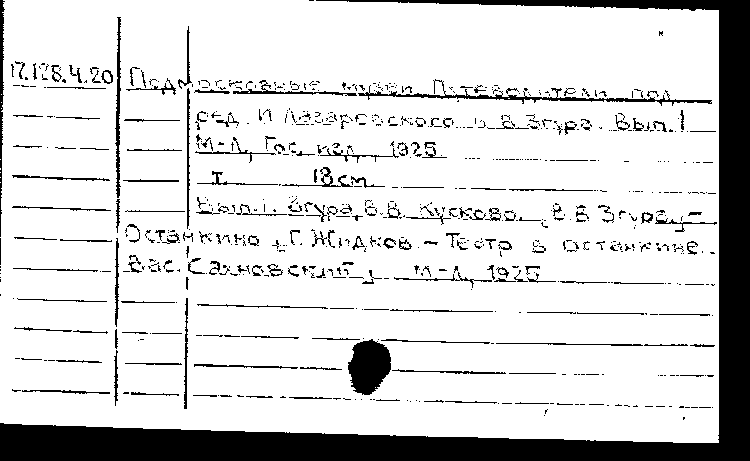 17.128.4.20 Подмосковные музеи. Путеводители под
ред. И Лазаревского и В. Згура. Вып. 1
М-Л, Гос. изд., 1925.
т. 18 см.
Вып. 1. Згура, В.В. Кусково. [В.В Згура], -
Останкино [Г. Жидков. - Театр в останкине.
Вас. Сахновский], М-Л, 1925